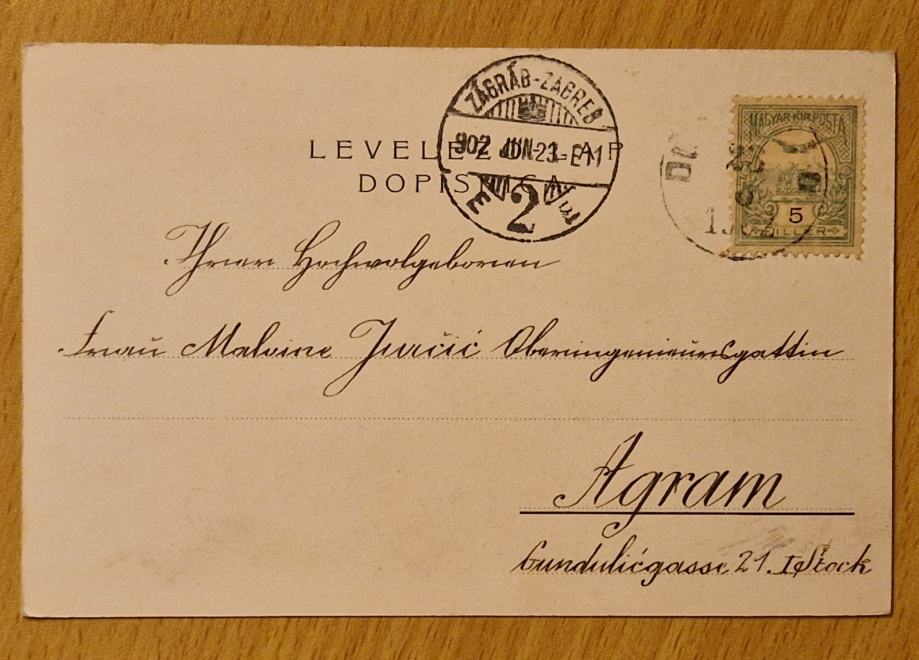 ZÁGRÁB-ZAGREB
902 JUN.23.-E11
2
MAGYAR KIR. POSTA
5
FILLER
LEVELEZŐ-LAP
DOPISNICA
Ihrer Hochwolgeboren
Frau Malvine Jurčić Oberingenieursgattin
Agram
Gundulićgasse 21. I Stock